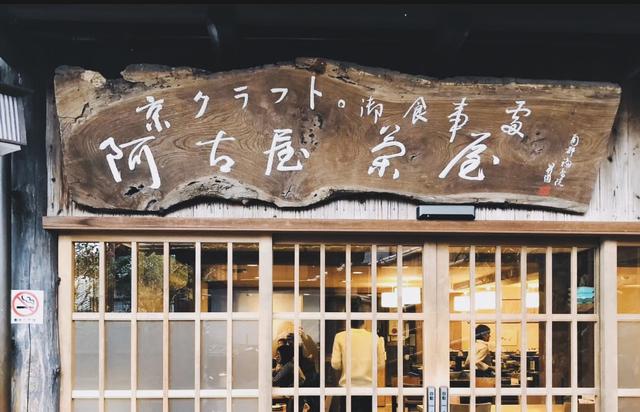 京クラフト。御食事處
阿古屋茶屋